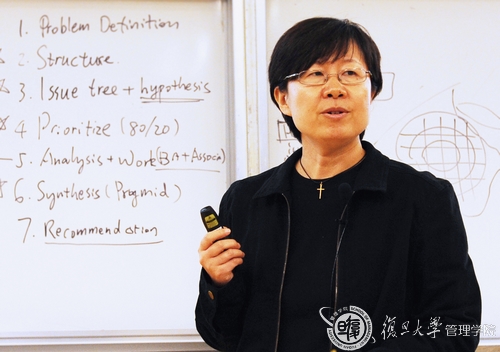 1. Problem Definition
2. Structure
3. Issue tree + hypothesis
4. Prioritize (80/20)
5. Analysis + Work (BA + Associa)
6. Synthesis (Pyramid)
7. Recommendation
復旦大學 管理学院